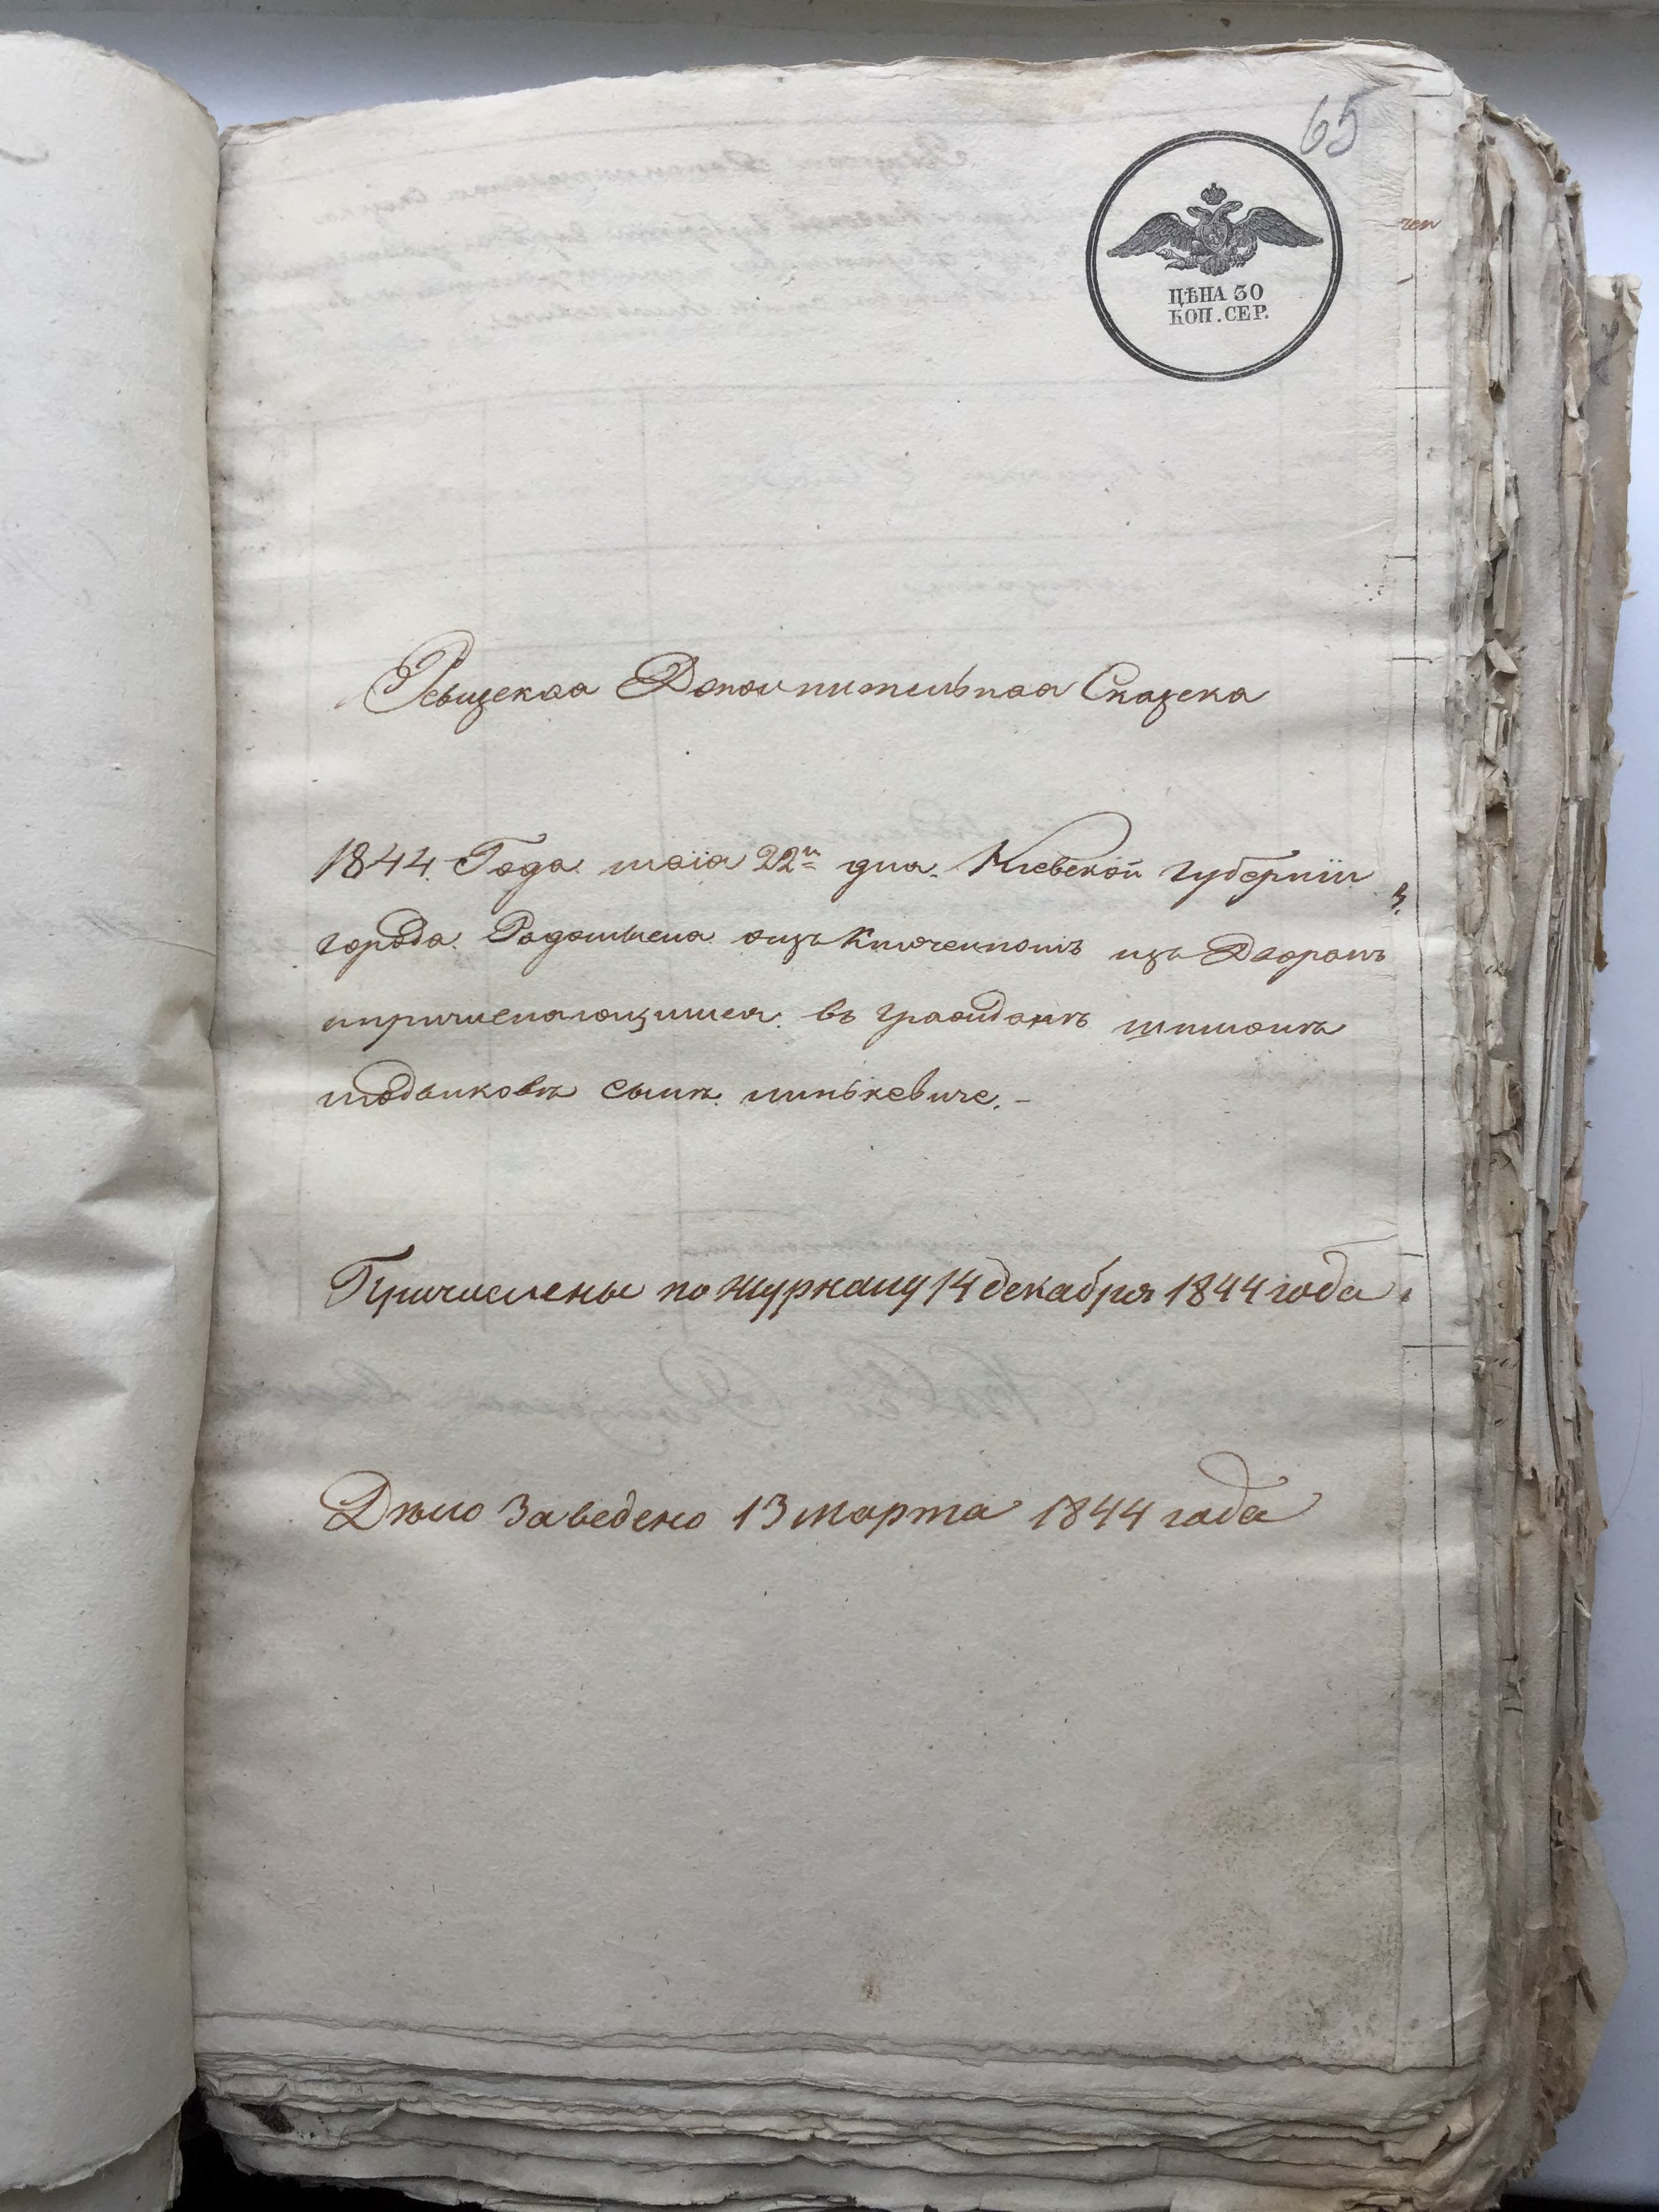 65
ЦѢНА 30
КОП. СЕР.
Ревизская Дополнительная Сказка
1844. Года маія 22го дня. Кіевской губерніи
города Радомысла изъ Дворянъ
причисляющимся въ граждане
сынѣ
Причислены по журналу 14 декабря 1844 года
Дѣло заведено 13 марта 1844 года